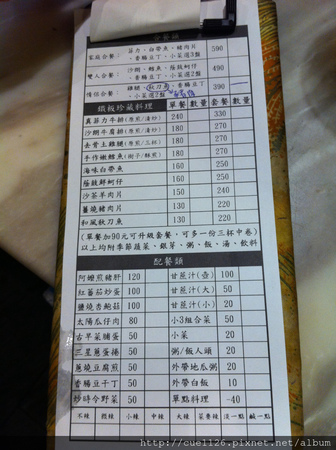 合餐類
家庭合餐: 菲力、白帶魚、豬肉片 590
、香腸豆丁、小菜選3點
雙人合餐: 沙朗、鱈魚、蔭豉鮮蚵 490
、香腸豆丁、小菜選2點
情侶合餐: 雞腿、秋刀魚、香腸豆丁 390
、小菜選2點
鐵板珍藏料理 單餐 數量 套餐 數量
真菲力牛排(原煎/清炒) 240 330
沙朗牛肩排(原煎/清炒) 160 250
去骨土雞腿(原煎/三杯) 180 270
手作嫩鱈魚(樹子/鮮煎) 180 270
海味白帶魚 160 250
蔭豉鮮蚵仔 160 250
沙茶羊肉片 150 240
薑燒豬肉片 130 220
和風秋刀魚 130 220
(單餐加90元可升級套餐,可多一份三杯中卷)
以上均附季節蔬菜、銀芽、粥、飯、湯、飲料
配餐類
阿嬤煎豬肝 120 甘蔗汁(壺) 100
紅蕃茄炒蛋 100 甘蔗汁(大) 50
鹽燒杏鮑菇 100 甘蔗汁(小) 20
太陽瓜仔肉 80 小3組合菜 50
古早菜脯蛋 50 小菜 20
三星蔥蛋捲 50 粥/飯人頭 20
蔥燒豆腐煎 50 外帶地瓜粥 20
香腸豆干丁 50 外帶白飯 10
炒時令野菜 50 單點料理 -40
不辣 微辣 小辣 中辣 大辣 菜香辣 淡一點 鹹一點
http://cue1126.pixnet.net/album